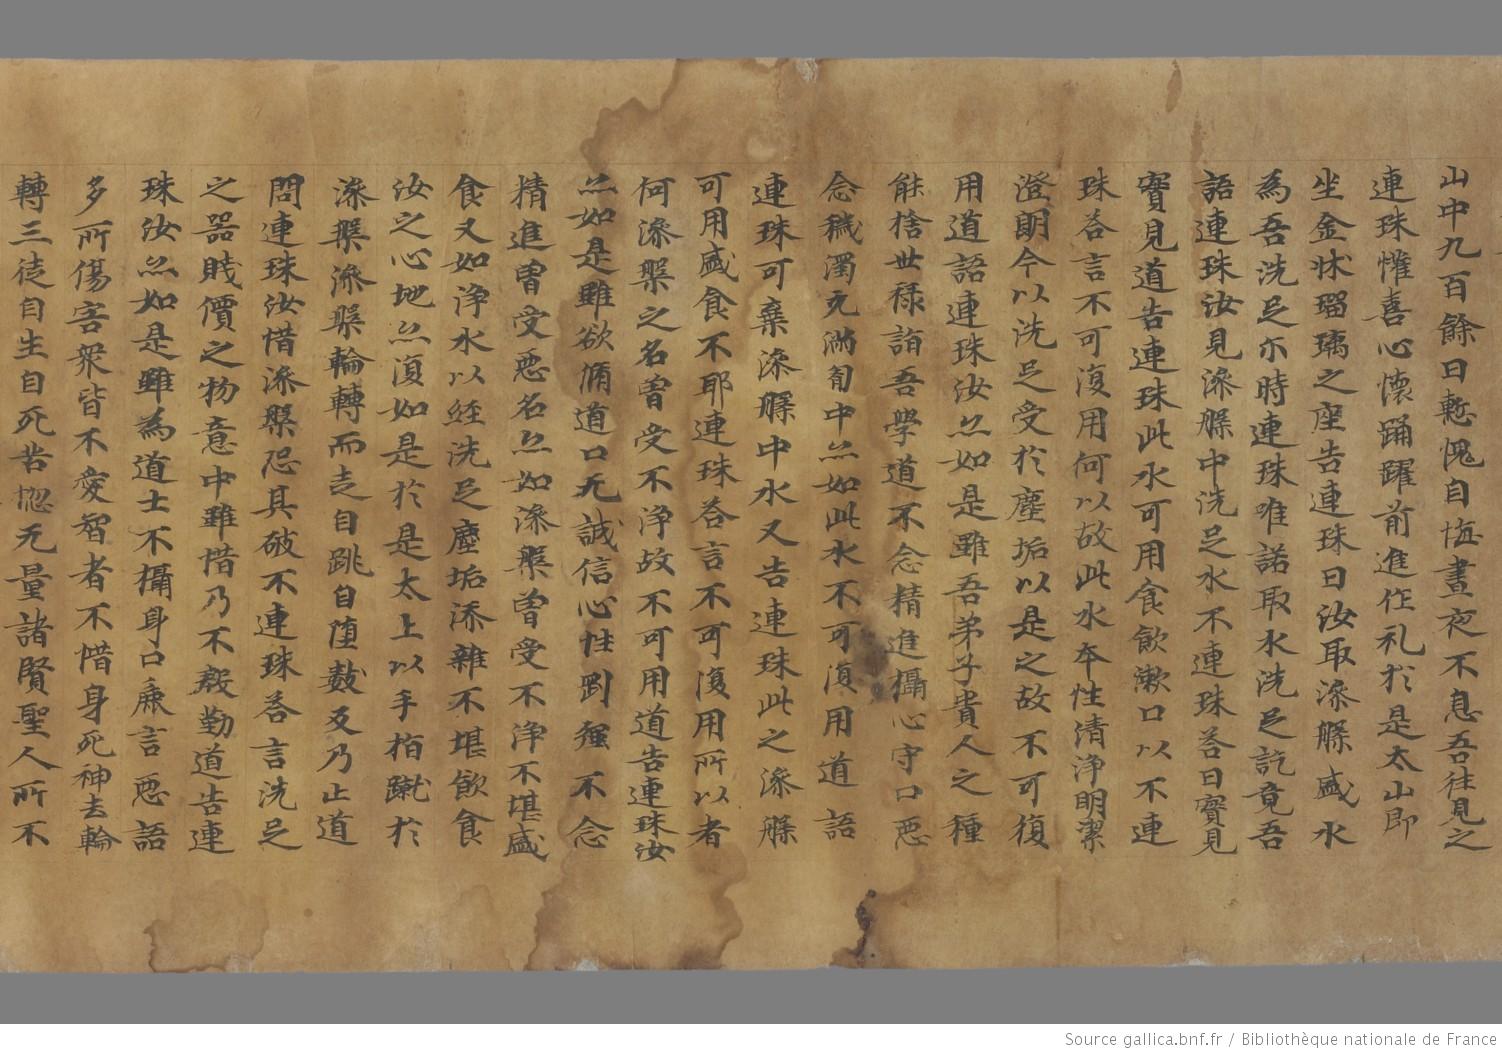 山中九百餘日慙愧自悔晝夜不息吾往見之
連珠懽喜心懷踊躍前進作礼於是太山即
坐金牀瑠璃之座告連珠曰汝取㴜䑛盛水
為吾洗足尒時連珠唯諾取水洗足訖竟吾
語連珠汝見㴜䑛中洗足水不連珠荅曰寳見
寳見道告連珠此水可用食飲漱口以不連
珠荅言不可復用何以故此水夲性清淨明潔
澄朗今以洗足受於塵垢以是之故不可復
用道語連珠汝亦如是雖吾弟子貴人之種
能捨世禄詣吾學道不念精進攝心守口惡
念穢濁充滿匈中亦如此水不可復用道語
連珠可棄㴜䑛中水又告連珠此之㴜䑛
可用盛食不耶連珠荅言不可復用所以者
何㴜槃之名曽受不淨故不可用道告連珠汝
亦如是雖欲脩道口无誠信心性剛強不念
精進曽受惡名亦如㴜槃曽受不淨不堪盛
食又如淨水以經洗足塵垢添雜不堪飲食
汝之心地亦復如是於是太上以手栢蹴於
㴜槃㴜槃輪轉而走自跳自墮數反乃止道
問連珠汝惜㴜槃恐其破不連珠荅言洗足
之器賤價之物意中雖惜乃不慇勤道告連
珠汝亦如是雖為道士不攝身口麁言惡語
多所傷害衆皆不愛智者不惜身死神去輪
轉三徒自生自死苦惱无量諸賢聖人所不
Source gallica.bnf.fr / Bibliothèque nationale de France